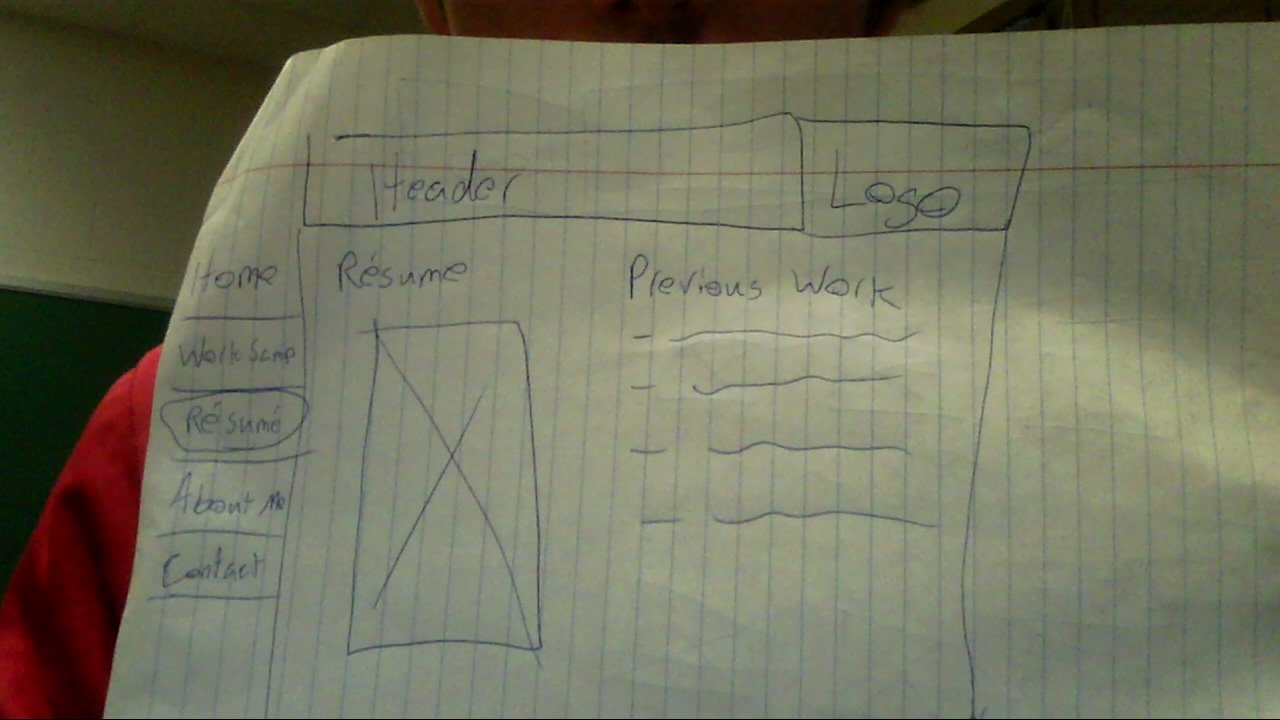 Header
Logo
Home
Work Samp
Résumé
About Me
Contact
Résume
Previous Work